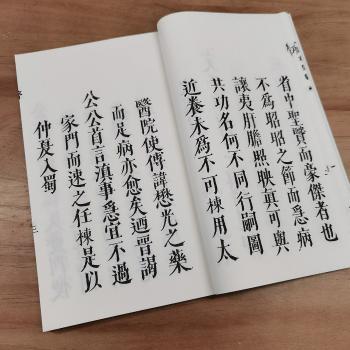 者中聖賢而豪傑者也
不為昭昭之節而為病
讓夷肝膽照映真可與
共功名何不同行嗣圖
近養未為不可棟用太
醫院使傅諱懋光之藥
而是病亦愈矣迺晉謁
公公首言滇事急宜不過
家門而速之任棟是以
仲夏入蜀